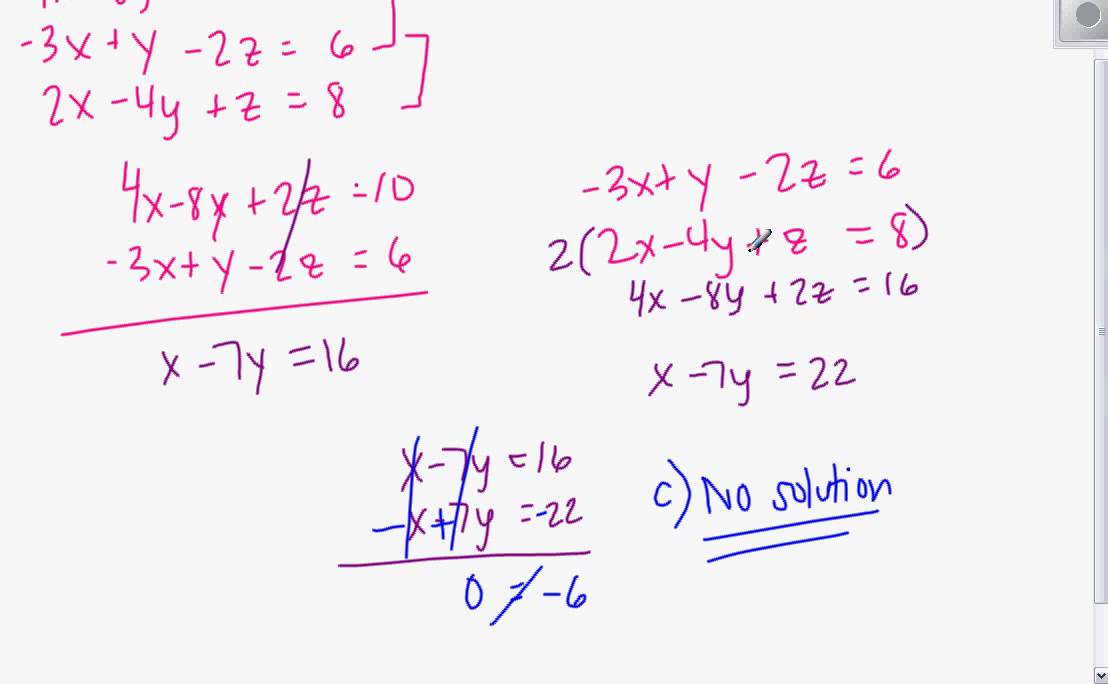 -3x+y -2z = 6
2x -4y +z = 8
4x-8y +2z =10
-3x+y -2z = 6
x -7y =16
-3x+y -2z =6
2(2x-4y+z =8)
4x -8y +2z =16
x -7y =22
x-7y =16
-x+7y =-22
0 ≠ -6
c) No solution